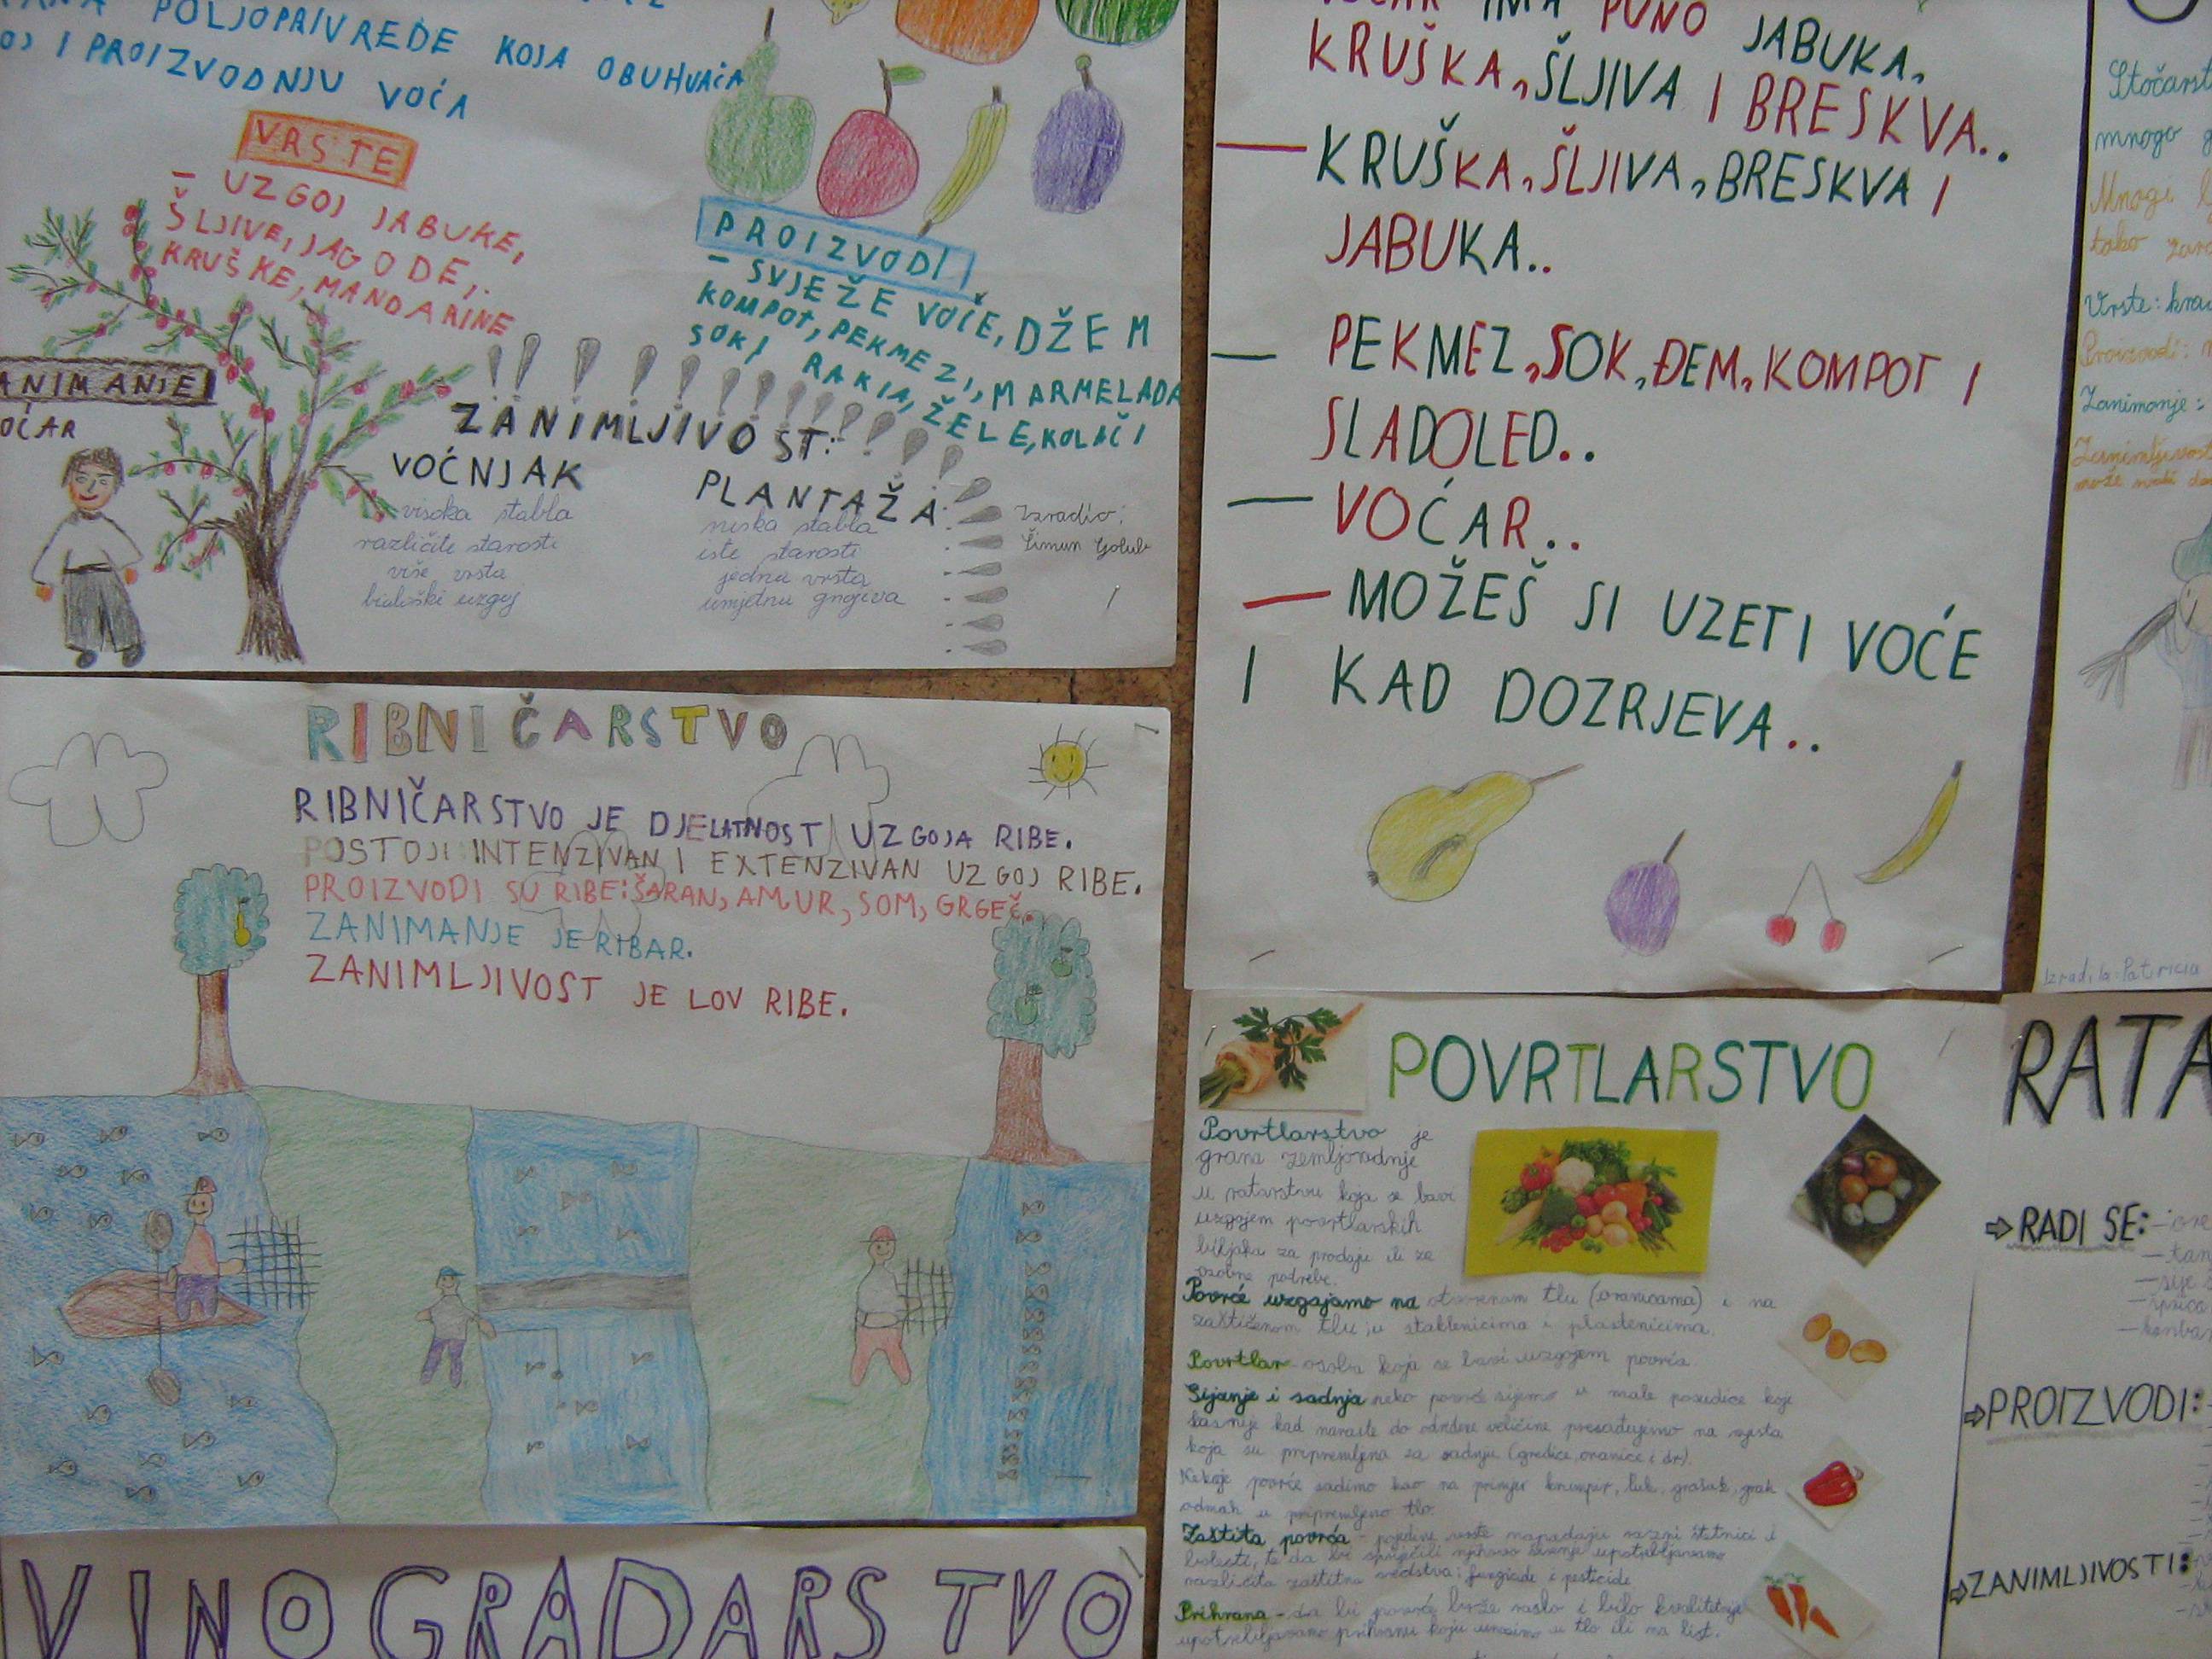 POLJOPRIVREDE KOJA OBUHVAĆA
I PROIZVODNJU VOĆA
VRSTE
- UZGOJ JABUKE,
ŠLJIVE, JAGODE,
KRUŠKE, MANDARINE
PROIZVODI
- SVJEŽE VOĆE, DŽEM
KOMPOT, PEKMEZI, MARMELADA
SOKI RAKIA, ŽELE, KOLAČI
ANIMANJE
OĆAR
ZANIMLJIVOST:
VOĆNJAK
visoka stabla
različite starosti
više vrsta
biološki uzgoj
PLANTAŽA
niska stabla
iste starosti
jedna vrsta
umjetna gnojiva
Izradio:
Šimun Golub
IMA PUNO JABUKA,
KRUŠKA, ŠLJIVA I BRESKVA..
— KRUŠKA, ŠLJIVA, BRESKVA I
JABUKA..
— PEKMEZ, SOK, ĐEM, KOMPOT I
SLADOLED..
— VOĆAR..
— MOŽEŠ SI UZETI VOĆE
I KAD DOZRJEVA..
Stočarst
mnogo g
Mnogi
tako
Vrste:
Proizvodi:
Zanimanje:
Zanimljivost
može
Izradila: Patricia
RIBNIČARSTVO
RIBNIČARSTVO JE DJELATNOST UZGOJA RIBE.
POSTOJI INTENZIVAN I EXTENZIVAN UZGOJ RIBE.
PROIZVODI SU RIBE: ŠARAN, AMUR, SOM, GRGEČ.
ZANIMANJE JE RIBAR.
ZANIMLJIVOST JE LOV RIBE.
VINOGRADARSTVO
POVRTLARSTVO
Povrtlarstvo je
grana zemljoradnje
u ratarstvu koja se bavi
uzgojem povrtlarskih
biljaka za prodaju ili za
osobne potrebe.
Povrće uzgajamo na otvorenom tlu (oranicama) i na
zaštićenom tlu, u staklenicima i plastenicima.
Povrtlar - osoba koja se bavi uzgojem povrća.
Sijanje i sadnja neko povrće sijemo u male posudice koje
kasnije kad naraste do određene veličine presađujemo na mjesta
koja su pripremljena za sadnju (gredice, oranice i dr).
Nekoje povrće sadimo kao na primjer krumpir, luk, grašak, grah
odmah u pripremljeno tlo.
Zaštita povrća - pojedine vrste napadaju razni štetnici i
bolesti, te da bi spriječili njihovo širenje upotrebljavamo
različita zaštitna sredstva: fungicide i pesticide
Prihrana - da bi povrće brže raslo i bilo kvalitetnije
upotrebljavamo prihranu koju unosimo u tlo ili na list.
RATA
RADI SE:
PROIZVODI:
ZANIMLJIVOSTI: